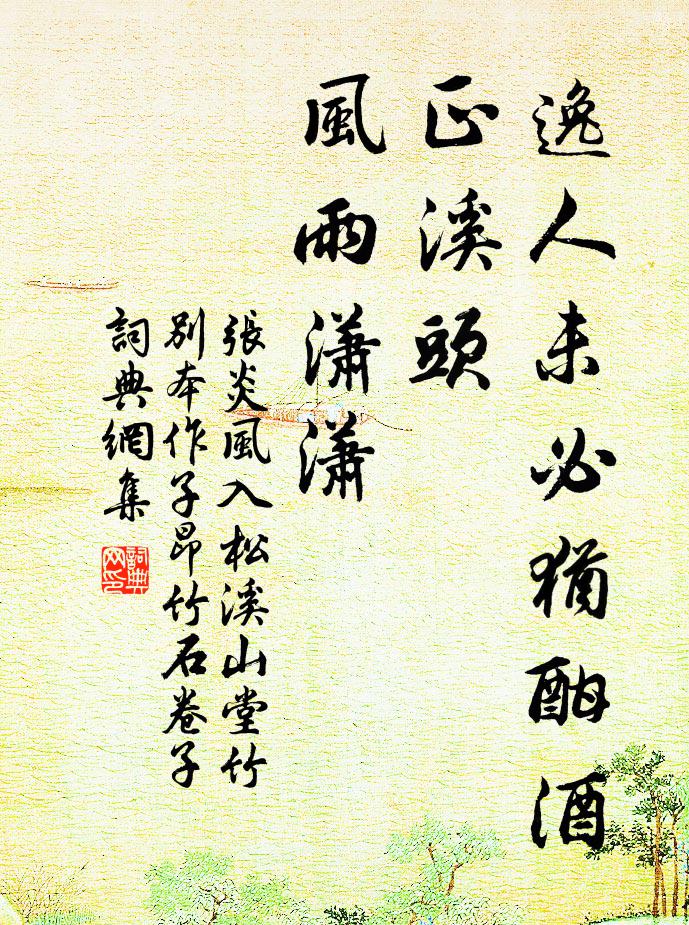 逸人未必猶酣酒
正溪頭
風雨瀟瀟
張炎風入松溪山堂竹
別本作子昂竹石卷子
詞典網集
詞典
网印